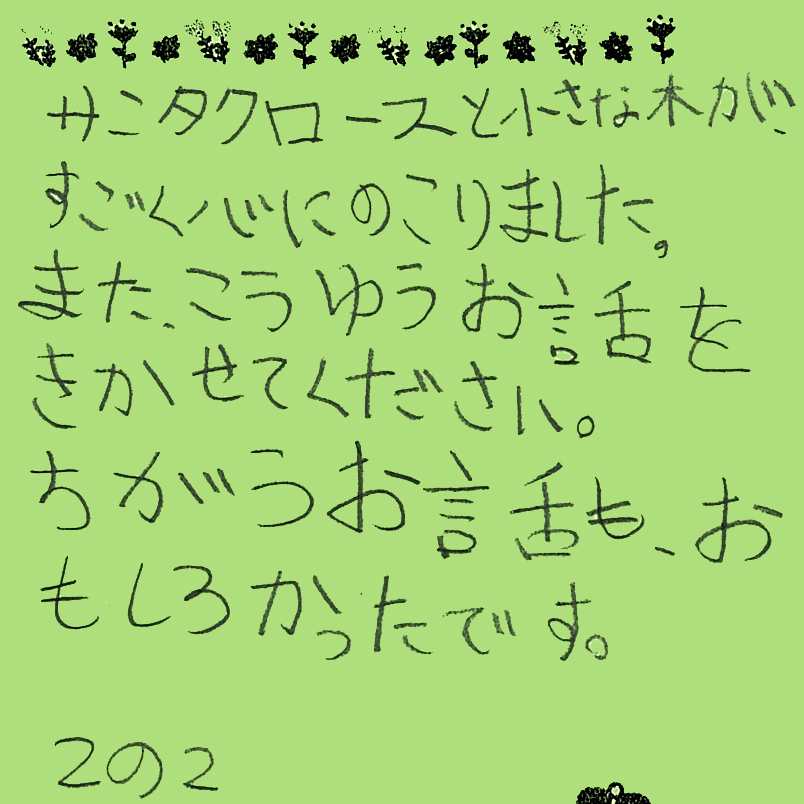 サンタクロースと小さな木が、
すごく心にのこりました。
また、こうゆうお話を
きかせてください。
ちがうお話も、お
もしろかったです。
2の2